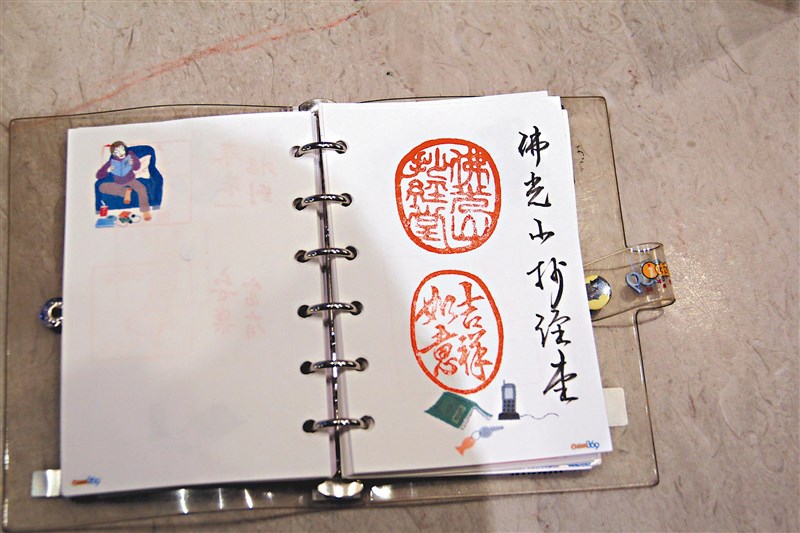 佛光山抄经堂
佛光山
抄經堂
吉祥
如意